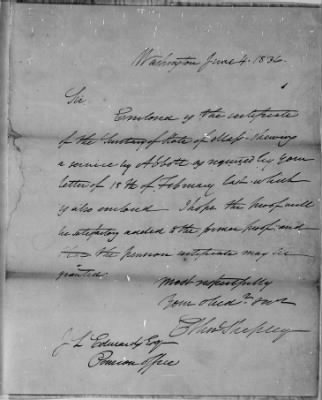 Washington June 4. 1836.
Sir
Enclosed is the certificate
of the Secretary of State of Mass. showing
a service by Abbott as required by your
letter of 18th of February last which
is also enclosed I hope the proof will
be satisfactory added to the former proof and
the pension certificate may be
granted.
Most respectfully
Your Obedt. Servt
Ether Shepley
J L Edwards Esq
Pension Office